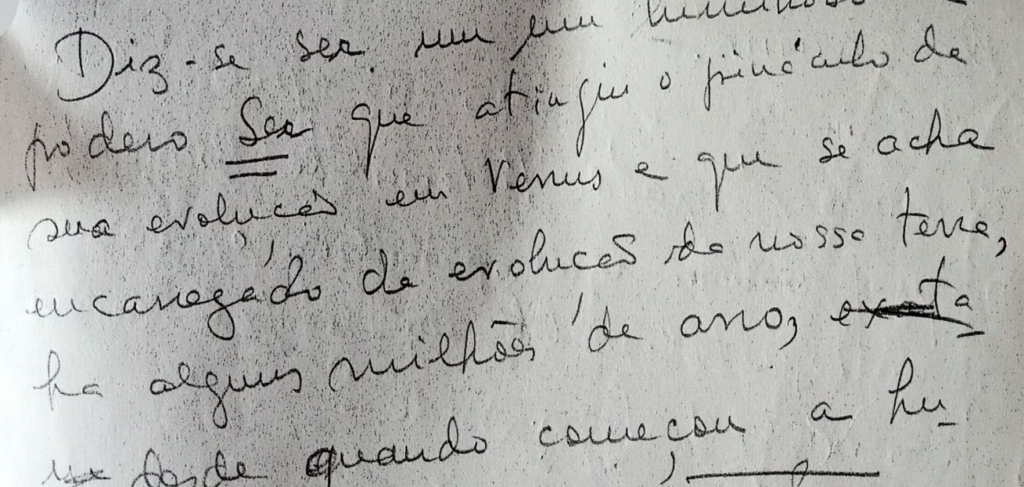 Diz-se ser um um luminoso
podero Ser que atingiu o pináculo da
sua evolução em Venus e que se acha
encarregado da evolução da nossa terra,
ha alguns milhões de ano,
desde quando começou a hu_